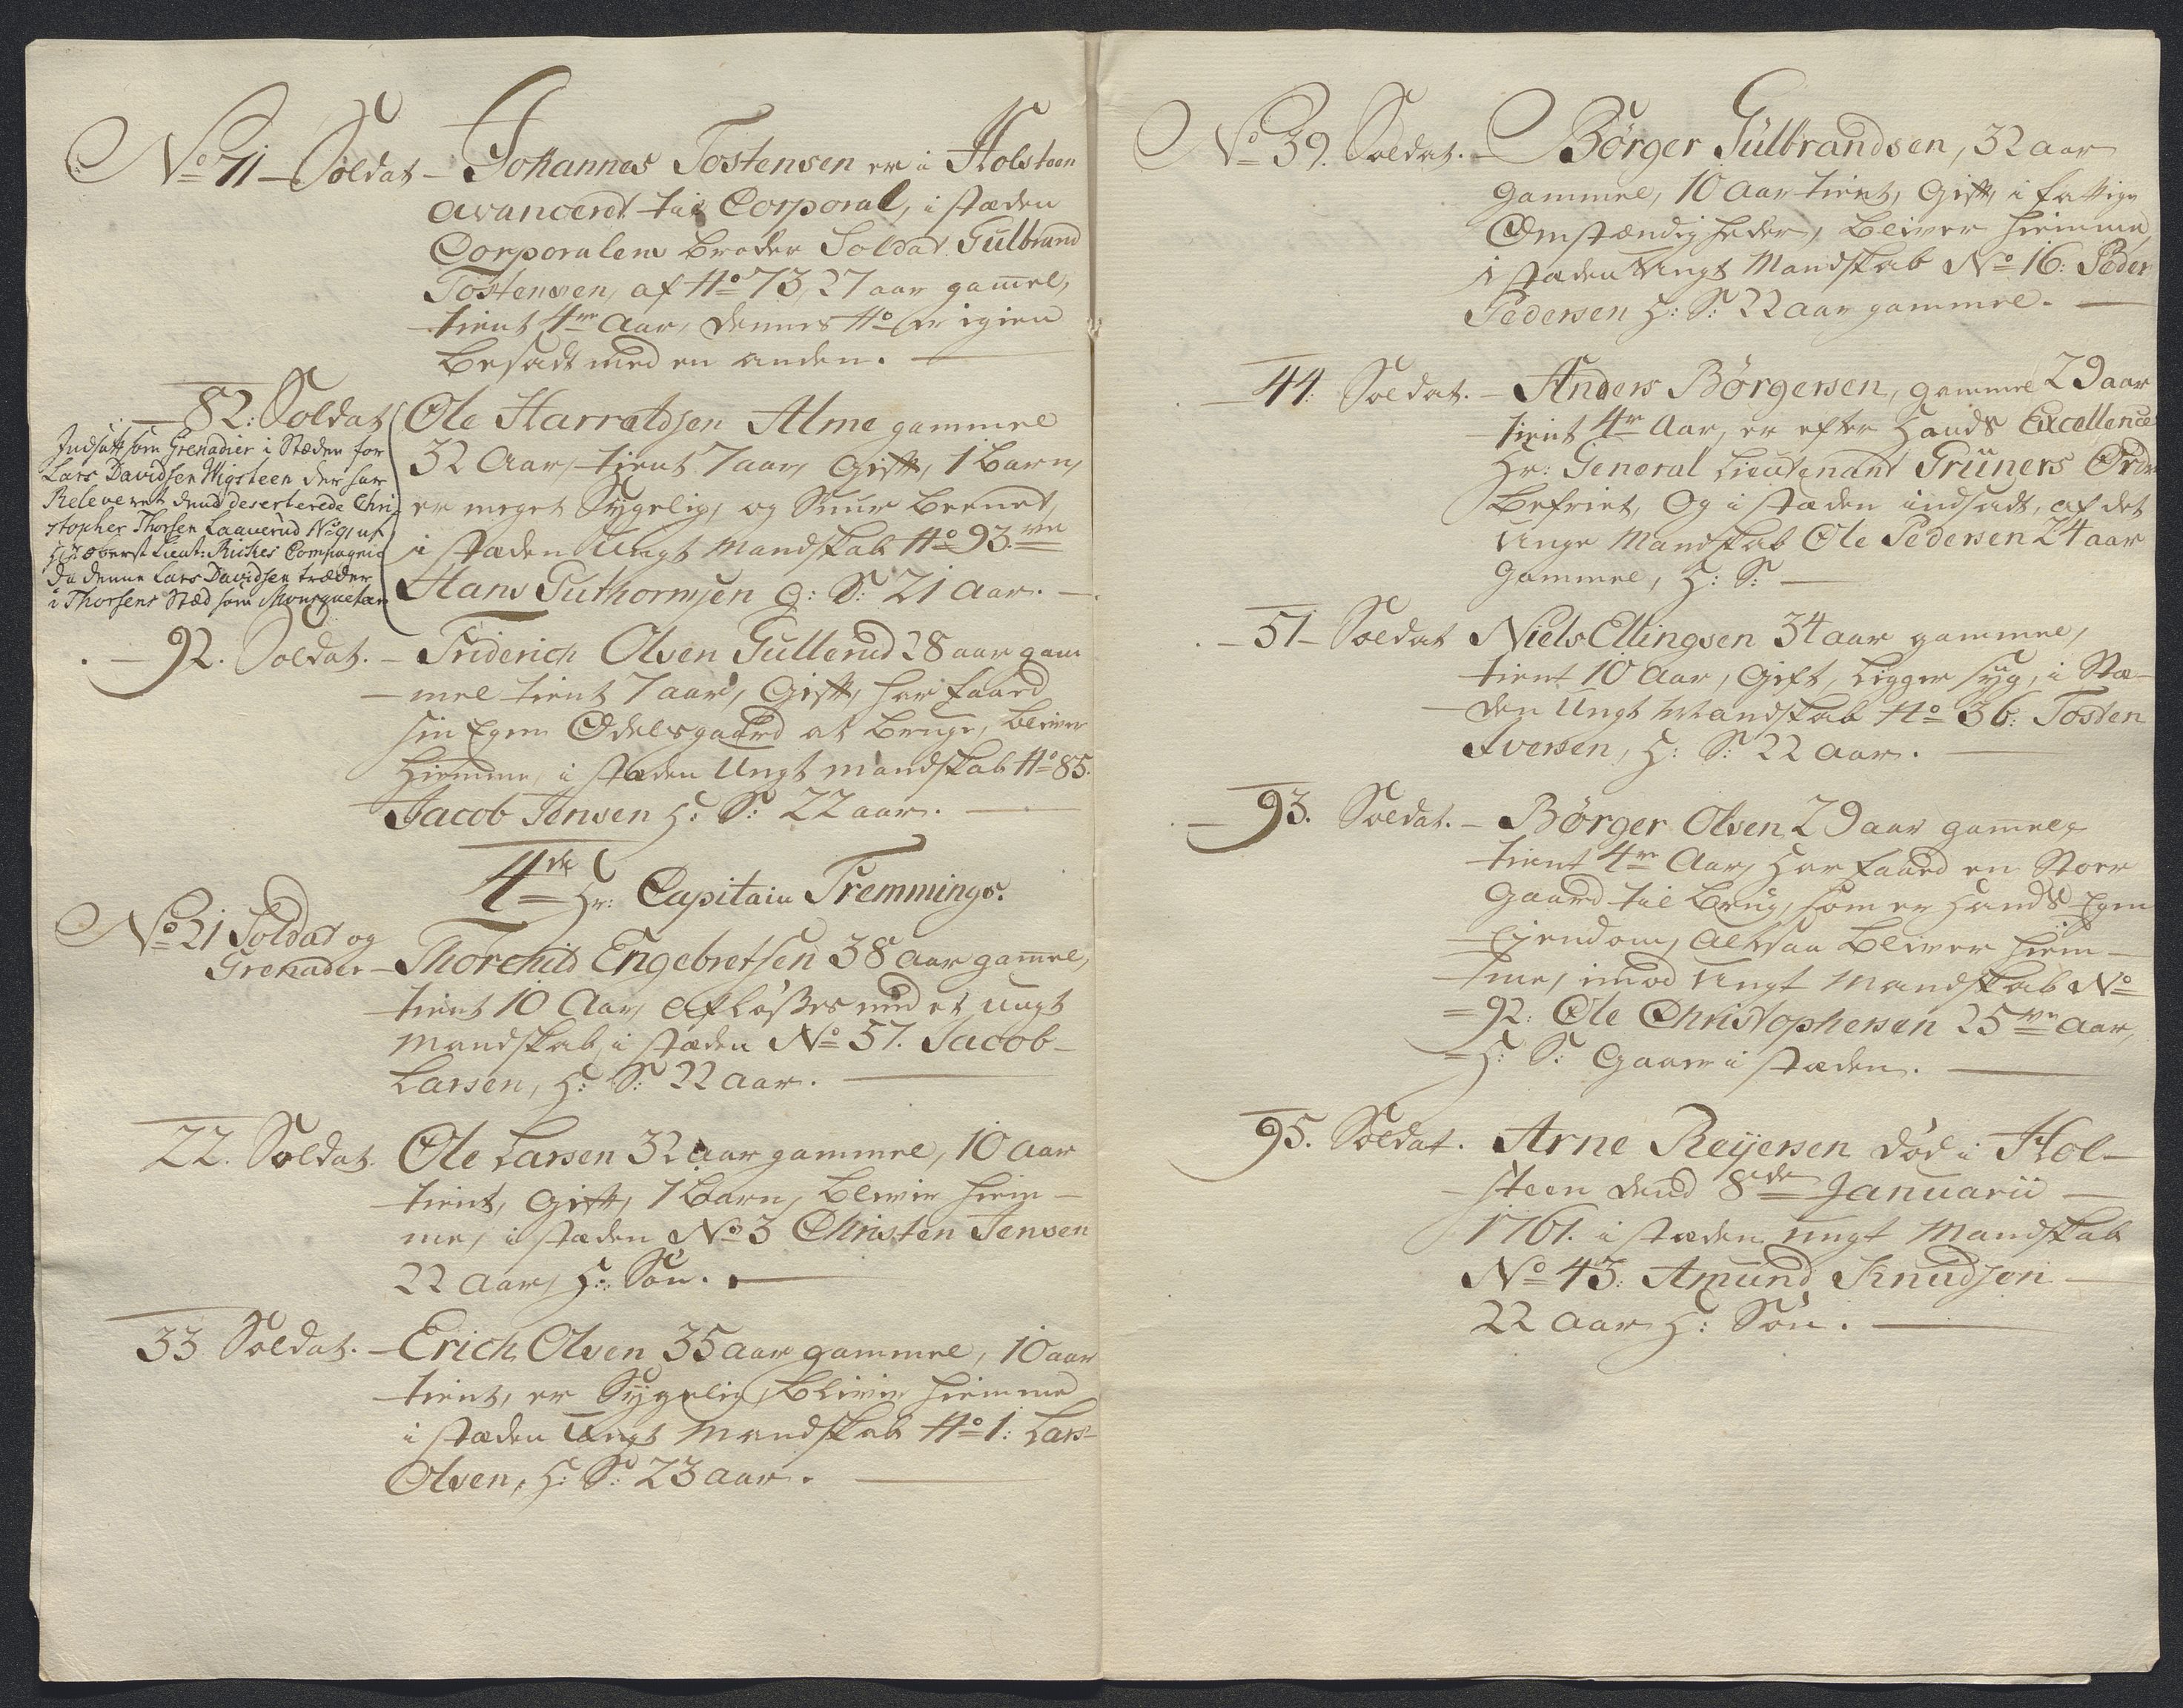 No 71 - Soldat - Johannes Tostensen er i Holsteen
avancerdt til Corporal, i stæden
Corporalens broder Soldat Gulbrand
Tostensen, af No 73, 27 aar gamel,
tient 4re Aar, dennes No er igien
besadt med en anden.
82: Soldat Ole Harraldsen Alme gammel
32 Aar, tient 7 aar, Gift, 1 Barn,
er meget Sygelig, og Suur Beenet,
i stæden Ungt Mandskab No 93.ve
Hans Guthormsen G: S: 21 Aar.
Indsatt som Grenadier i Stæden for
Lars Davidsen Wigsteen der har
Releveret dend deserterede Chri-
stopher Thorsen Laauerud No 91 af
Hr: Oberst Lieut: Riches Compagnie
da denne Lars Davidsen træder
i Thorsens Stæd som Mousquetair
92. Soldat. - Friderich Olsen Gullerud 28 aar gam
mel tient 7 aar, Gift, har faaed
sin Egen Odelsgaard at bruge, bliver
hiemme, i stæden Ungt Mandskab No 85.
Jacob Jensen H: S: 22 aar.
4de Hr: Capitain Fremmings.
No 21 Soldat og
Grenader - Thorchild Engebretsen 38 aar gamel,
tient 10 Aar, afløsses med et ungt
Mandskab, i stæden No 57. Jacob
Larsen, H: S: 22 aar.
22. Soldat. Ole Larsen 32 aar gammel, 10 aar
tient, gift, 1 Barn, blivir hiem-
me, i stæden No 3 Christen Jensen
22 aar, H: Søn.
33 Soldat. - Erich Olsen 35 aar gammel, 10 aar
tient, er Sygelig, blivir hiemme
i stæden Ungt Mandskab No 1: Lars
Olsen, H: S: 23 aar.
No 39. Soldat. - Børger Gulbrandsen, 32 aar
gammel, 10 aar tient, Gift, i fattige
Omstændigheder, bliver hiemme,
i stæden Ungt Mandskab No 16: Peder
Pedersen H: S: 22 aar gammel.
44. Soldat. - Anders Børgersen, gammel 29 aar
tient 4re Aar, er efter Hands Excellence
Hr: General Lieutenant Grüners Ordre
befriet, Og i stæden indsadt, af det
Unge Mandskab Ole Pedersen 24 aar
Gammel, H: S:
51 - Soldat Niels Ellingsen 34 aar gammel,
tient 10 Aar, gift, ligger syg, i Stæ-
den Ungt Mandskab No 36: Tosten
Iversen, H: S: 22 aar.
93. Soldat. - Børger Olsen 29 aar gamel,
tient 4re Aar, har faaed en Stoer
Gaard til brug, som er hands Egen
Ejendom, Altsaa bliver hiem-
me, imod Ungt Mandskab No
92: Ole Christophersen 25ve Aar,
H: S: Gaar i stæden.
95. Soldat. Arne Reijersen død i Hol-
steen dend 8de Januarii
1761. i stæden ungt Mandskab
No 43: Amund Knudsen
22 Aar H: Søn.